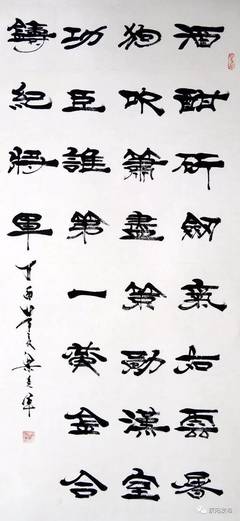 酒酣斫劍氣如雲屠
狗吹簫盡策勳漢室
功臣誰第一黃金合
鑄紀將軍
丁酉